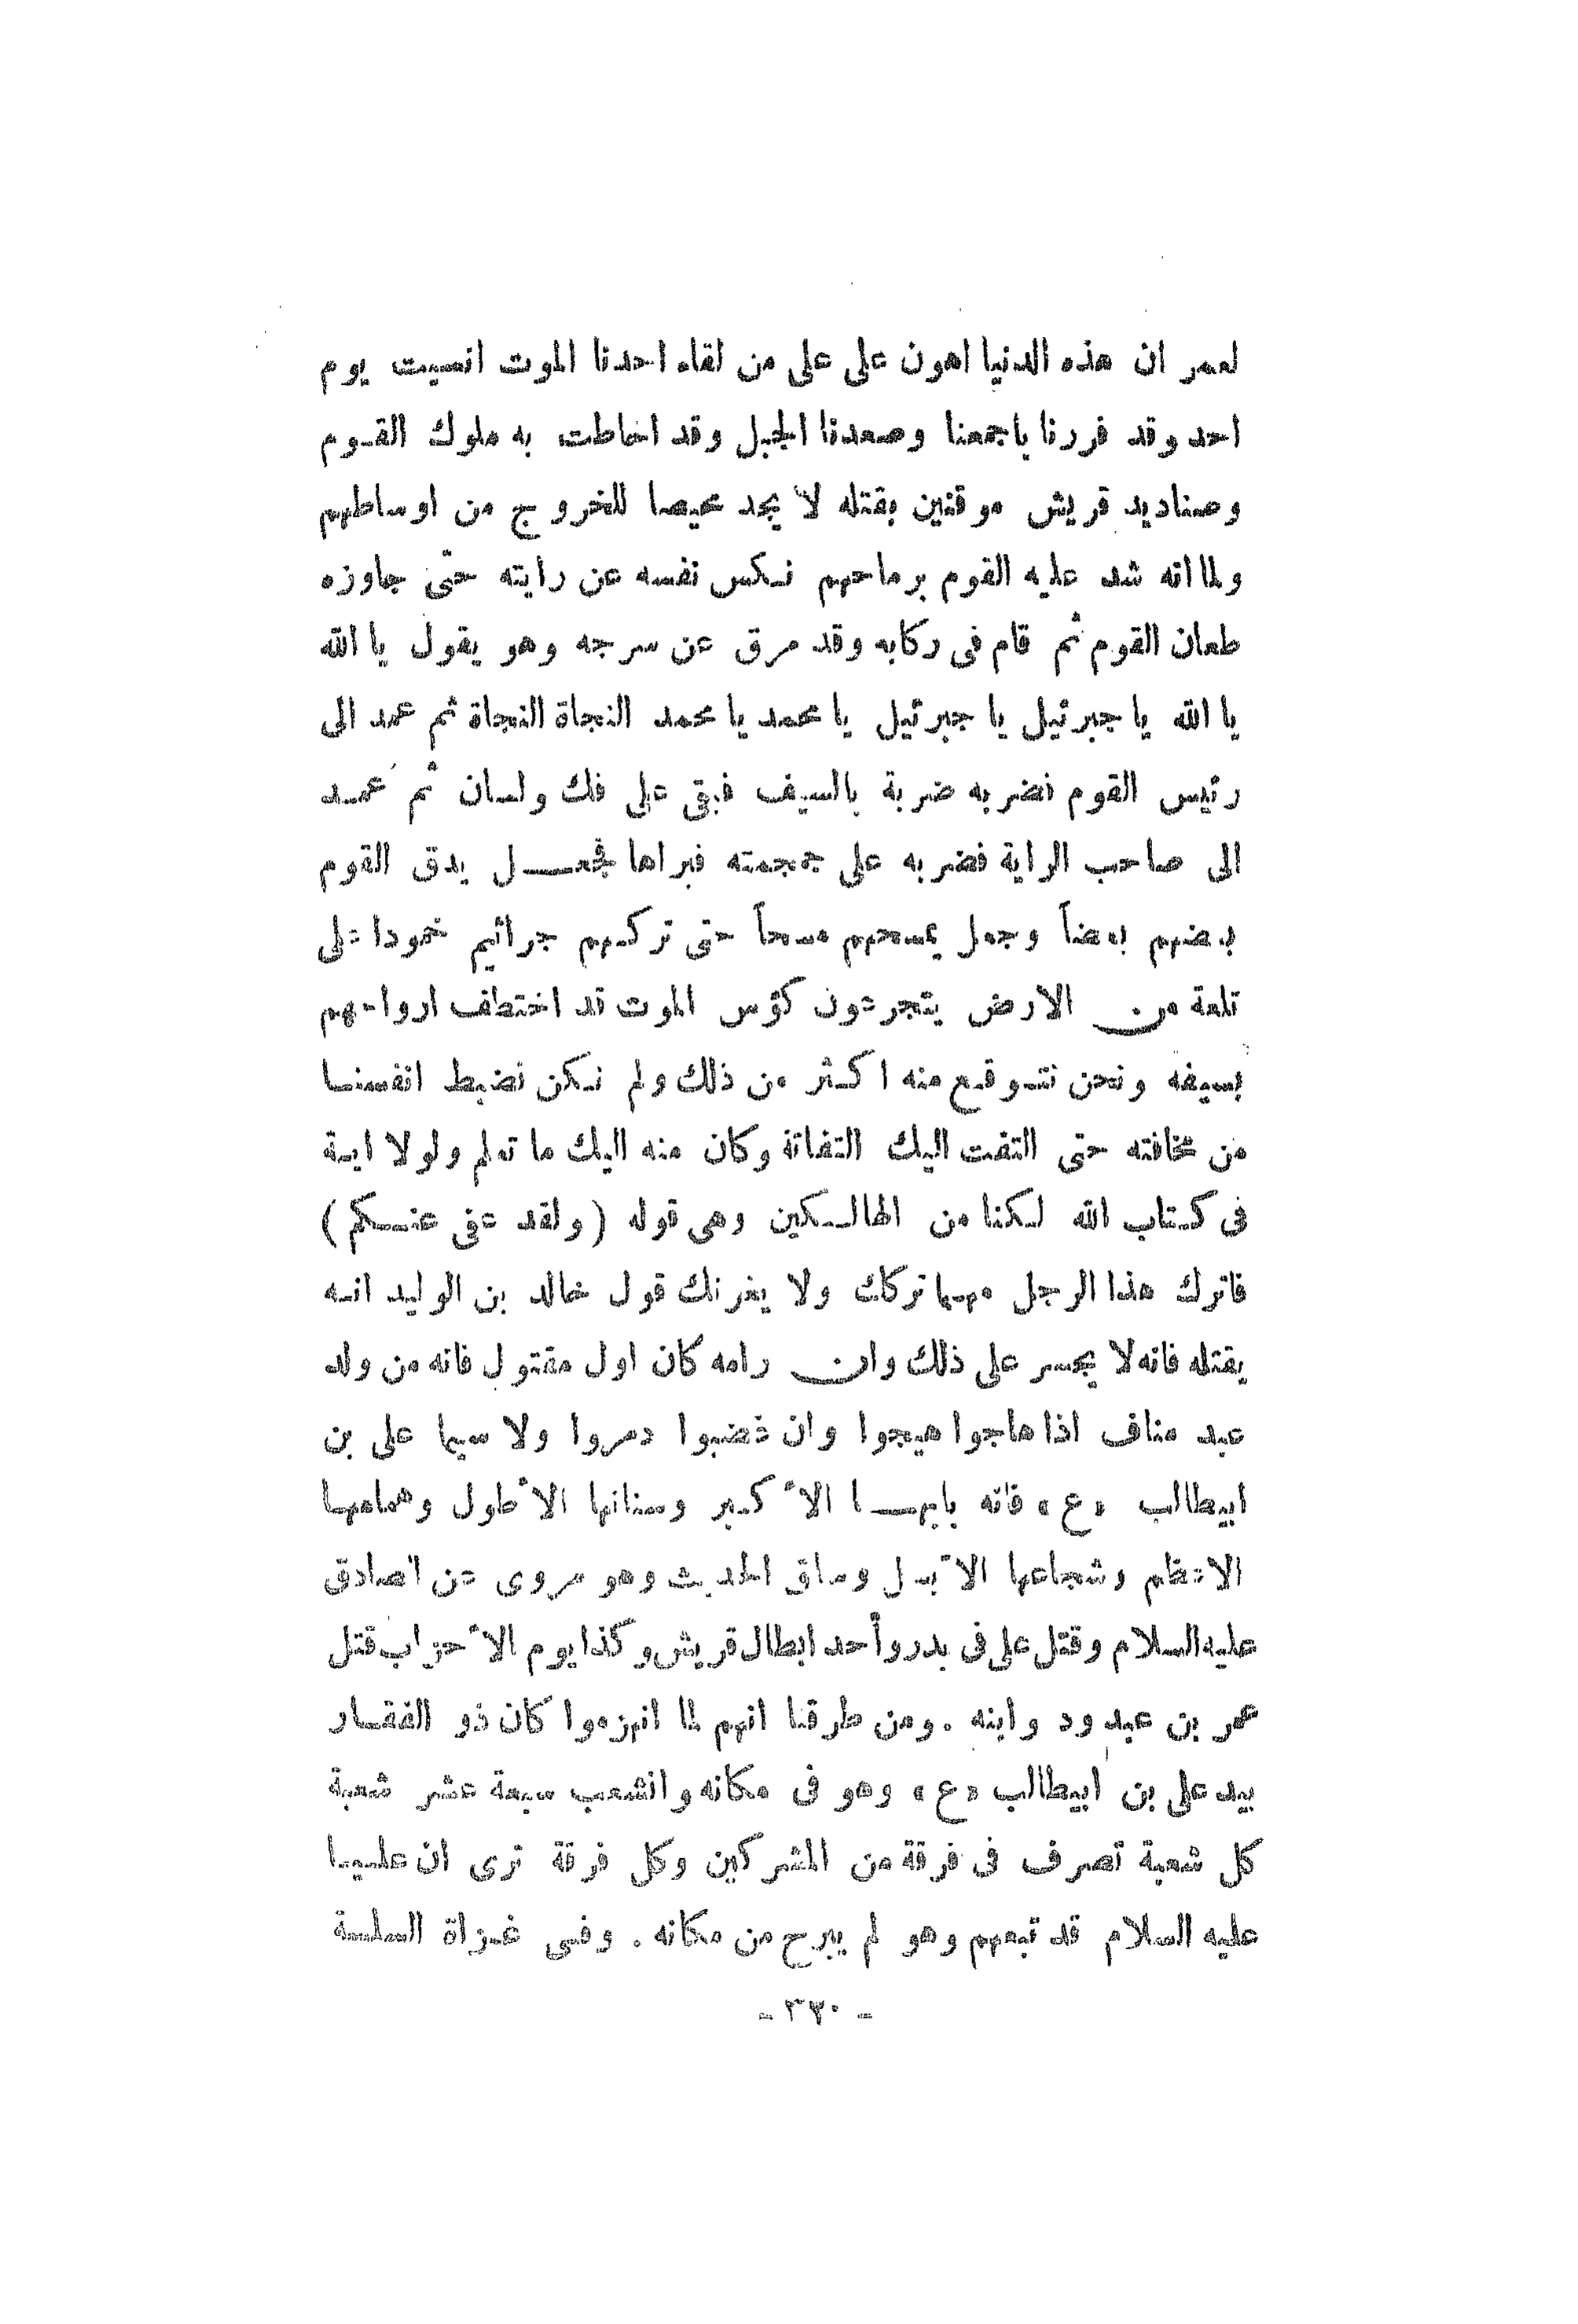 لعمر ان هذه الدنيا اهون على على من لقاه احدنا الموت انسيت يوم
احد وقد فررنا باجمعنا وصعدنا الجبل وقد احاطت به ملوك القـوم
وصناديد قريش موقنين بقتله لا يجد محيصا للخروج من اوساطهم
ولما انه شد عليه القوم برماحهم نـكس نفسه عن رايته حتى جاوزه
طعان القوم ثم قام فى ركابه وقد مرق عن سرجه وهو يقول يا الله
يا الله يا جبرئيل يا جبرئيل يا محمد يا محمد النجاة النجاة ثم عمد الى
رئيس القوم فضربه ضربة بالسيف فبقى على فك ولسان ثم عمـد
الى صاحب الراية فضربه على جمجمته فبراها فجعـــل يدق القوم
بعضهم بعضاً وجعل يمسحهم مسحاً حتى تركـهم جراثيم خمودا على
تلعة من الارض يتجرعون كؤس الموت قد اختطف ارواحهم
بسيفه ونحن نتـوقـع منه اكـثر من ذلك ولم نـكن نضبط انفسنـا
من مخافته حتى التفت اليك التفاتة وكان منه اليك ما تعلم ولولا ايـة
فى كـتاب الله لـكنا من الهالـكين وهى قوله (ولقد عفى عنـكم)
فاترك هذا الرجل مهـما تركك ولا يغرنك قول خالد بن الوليد انـه
يقتله فانه لا يجسر على ذلك وان رامه كان اول مقتول فانه من ولد
عبد مناف اذا هاجوا هيجوا وان غضبوا دمروا ولا سيما على بن
ابيطالب «ع» فانه بابهـــا الأكـبر وسنانها الأطول وهمامهـا
الاعظم وشجاعها الأبـسل وساق الحديث وهو مروى عن الصادق
عليه السلام وقتل على فى بدر وأحد ابطال قريش وكذا يوم الأحزاب قتل
عمر بن عبد ود وابنه . ومن طرقنا انهم لما انهزموا كان ذو الفقـار
بيد على بن ابيطالب «ع» وهو فى مكانه وانشعب سبعة عشر شعبة
كل شعبة تصرف فى فرقة من المشركين وكل فرقة ترى ان عليـا
عليه السلام قد تبعهم وهو لم يبرح من مكانه . وفـى غـزاة السلسة
- ٣٣٠ -